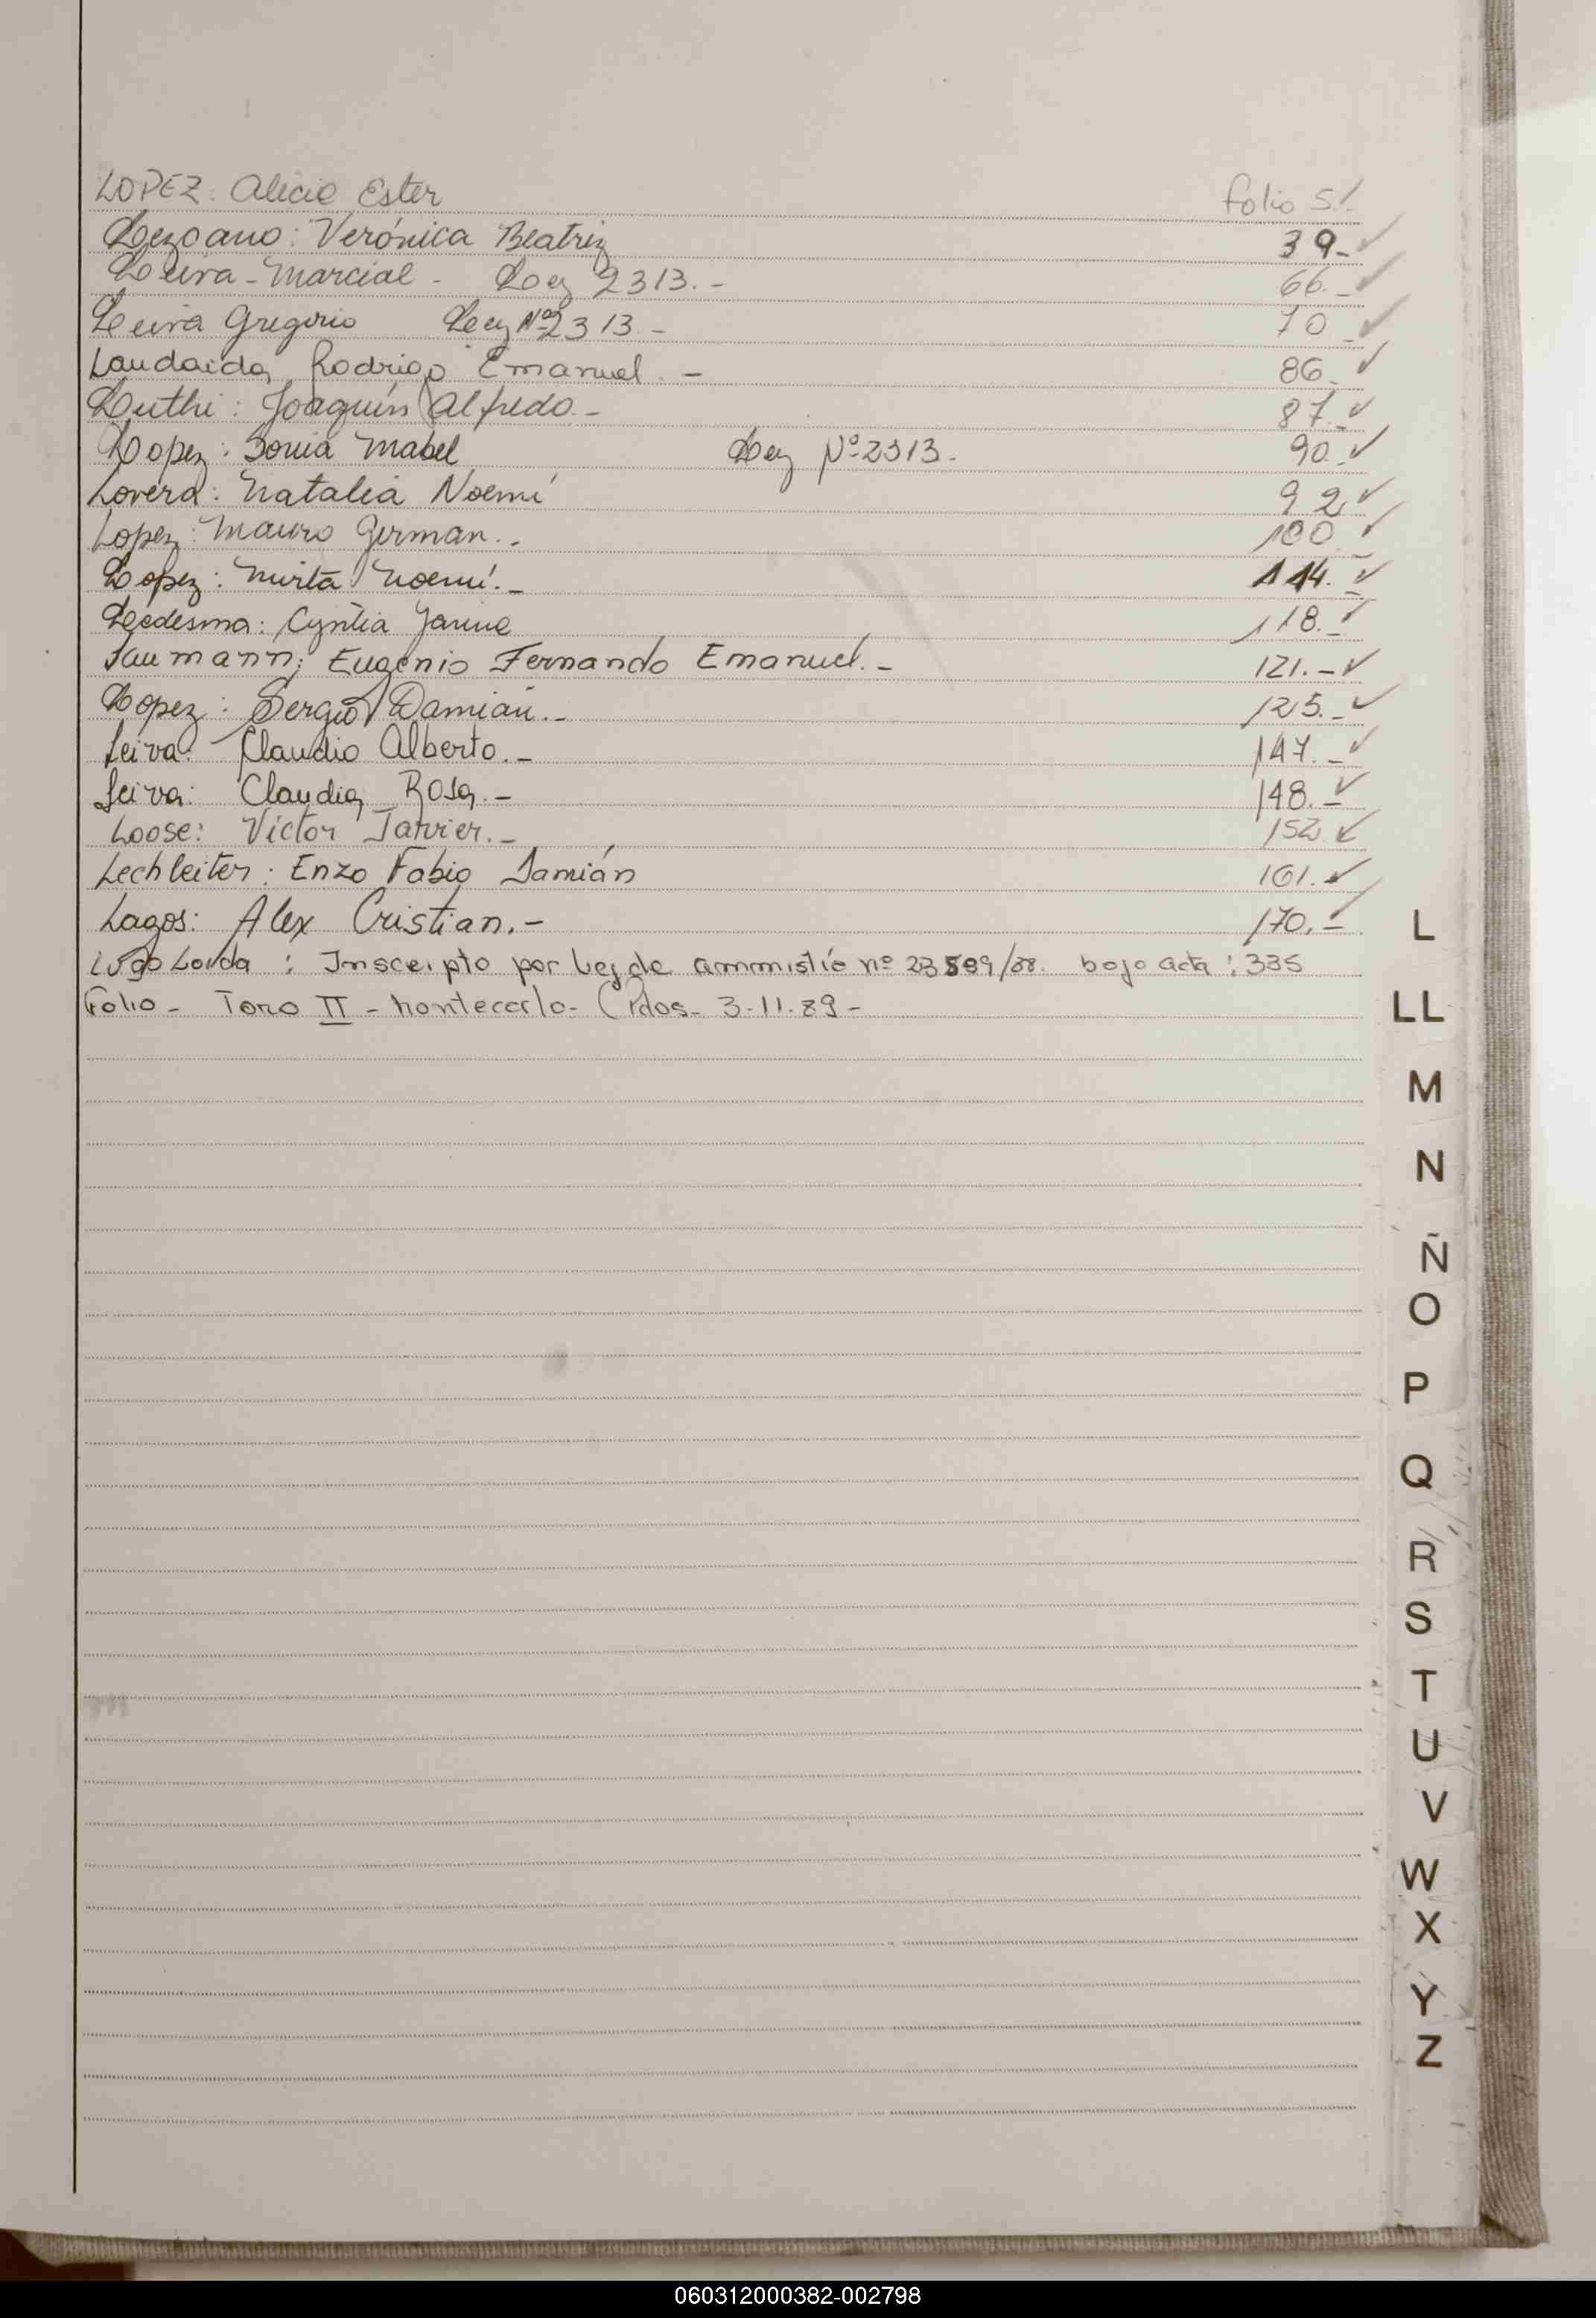 LOPEZ: Alicia Ester folio 5.
Lezcano: Verónica Beatriz 39-
Leiva - Marcial - Ley 2313.- 66.-
Leiva Gregorio Ley Nº 2313.- 70-
Landaida, Rodrigo Emanuel.- 86-
Luthi: Joaquín Alfredo.- 87-
Lopez: Sonia Mabel Ley Nº 2313.- 90-
Lovera: Natalia Noemí 92
Lopez: Mauro German.- 100-
Lopez: Mirta Noemí.- 114.-
Ledesma: Cyntia Janine 118.-
Laumann; Eugenio Fernando Emanuel.- 121.-
Lopez: Sergio Damián.- 125.-
Leiva: Claudio Alberto.- 147.-
Leiva: Claudia, Rosa.- 148.-
Loose: Víctor Javier.- 152
Lechleiter: Enzo Fabio Damián 161.-
Lagos: Alex Cristian.- 170.-
Lugo : Inscripto por Ley de ammistía nº 23 509/88. bajo acta: 335
Folio - Tomo II - Montecarlo- 3-11-89-
L
LL
M
N
Ñ
O
P
Q
R
S
T
U
V
W
X
Y
Z
060312000382-002798